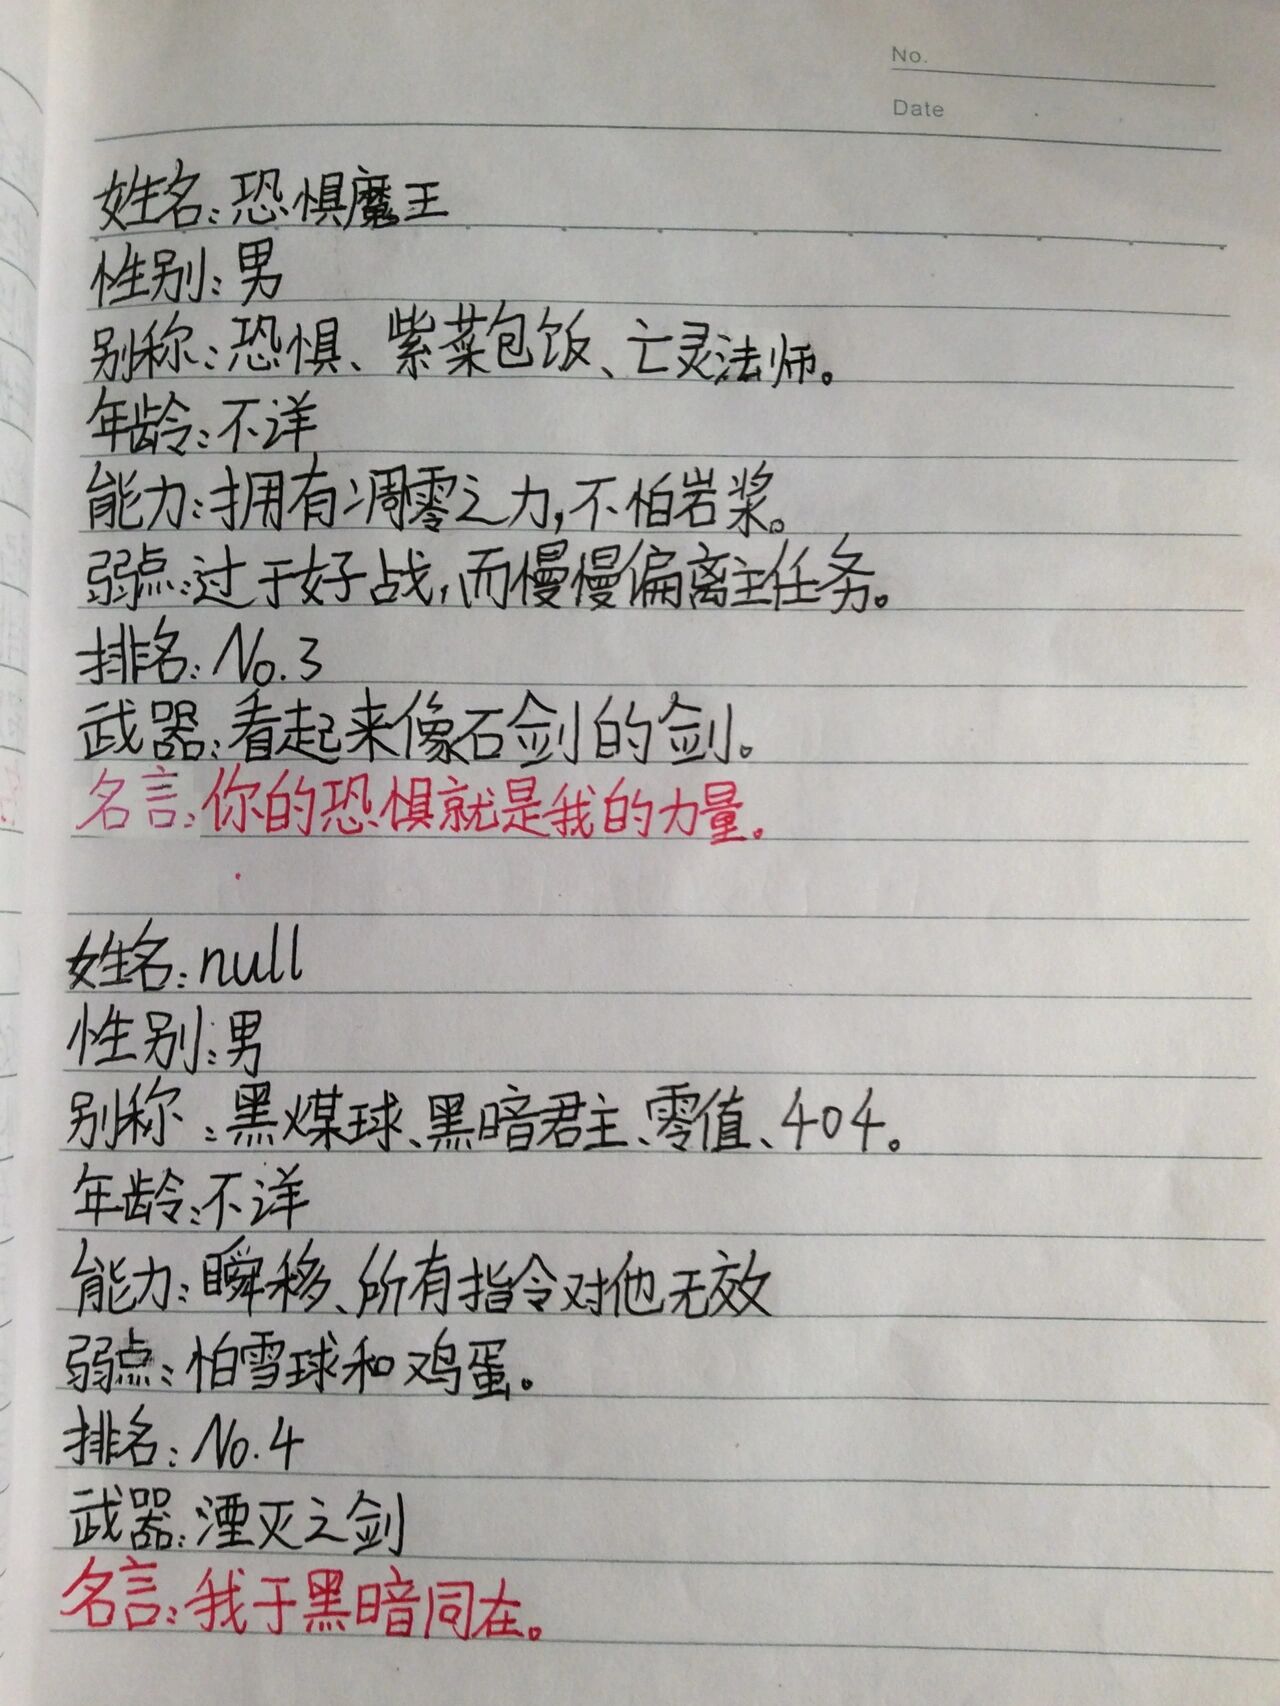 No.
Date
姓名：恐惧魔王
性别：男
别称：恐惧、紫菜包饭、亡灵法师。
年龄：不洋
能力：拥有凋零之力，不怕岩浆。
弱点：过于好战，而慢慢偏离主任务。
排名：No.3
武器：看起来像石剑的剑。
名言：你的恐惧就是我的力量。
姓名：null
性别：男
别称：黑煤球、黑暗君主、零值、404。
年龄：不洋
能力：瞬移、所有指令对他无效
弱点：怕雪球和鸡蛋。
排名：No.4
武器：湮灭之剑
名言：我于黑暗同在。